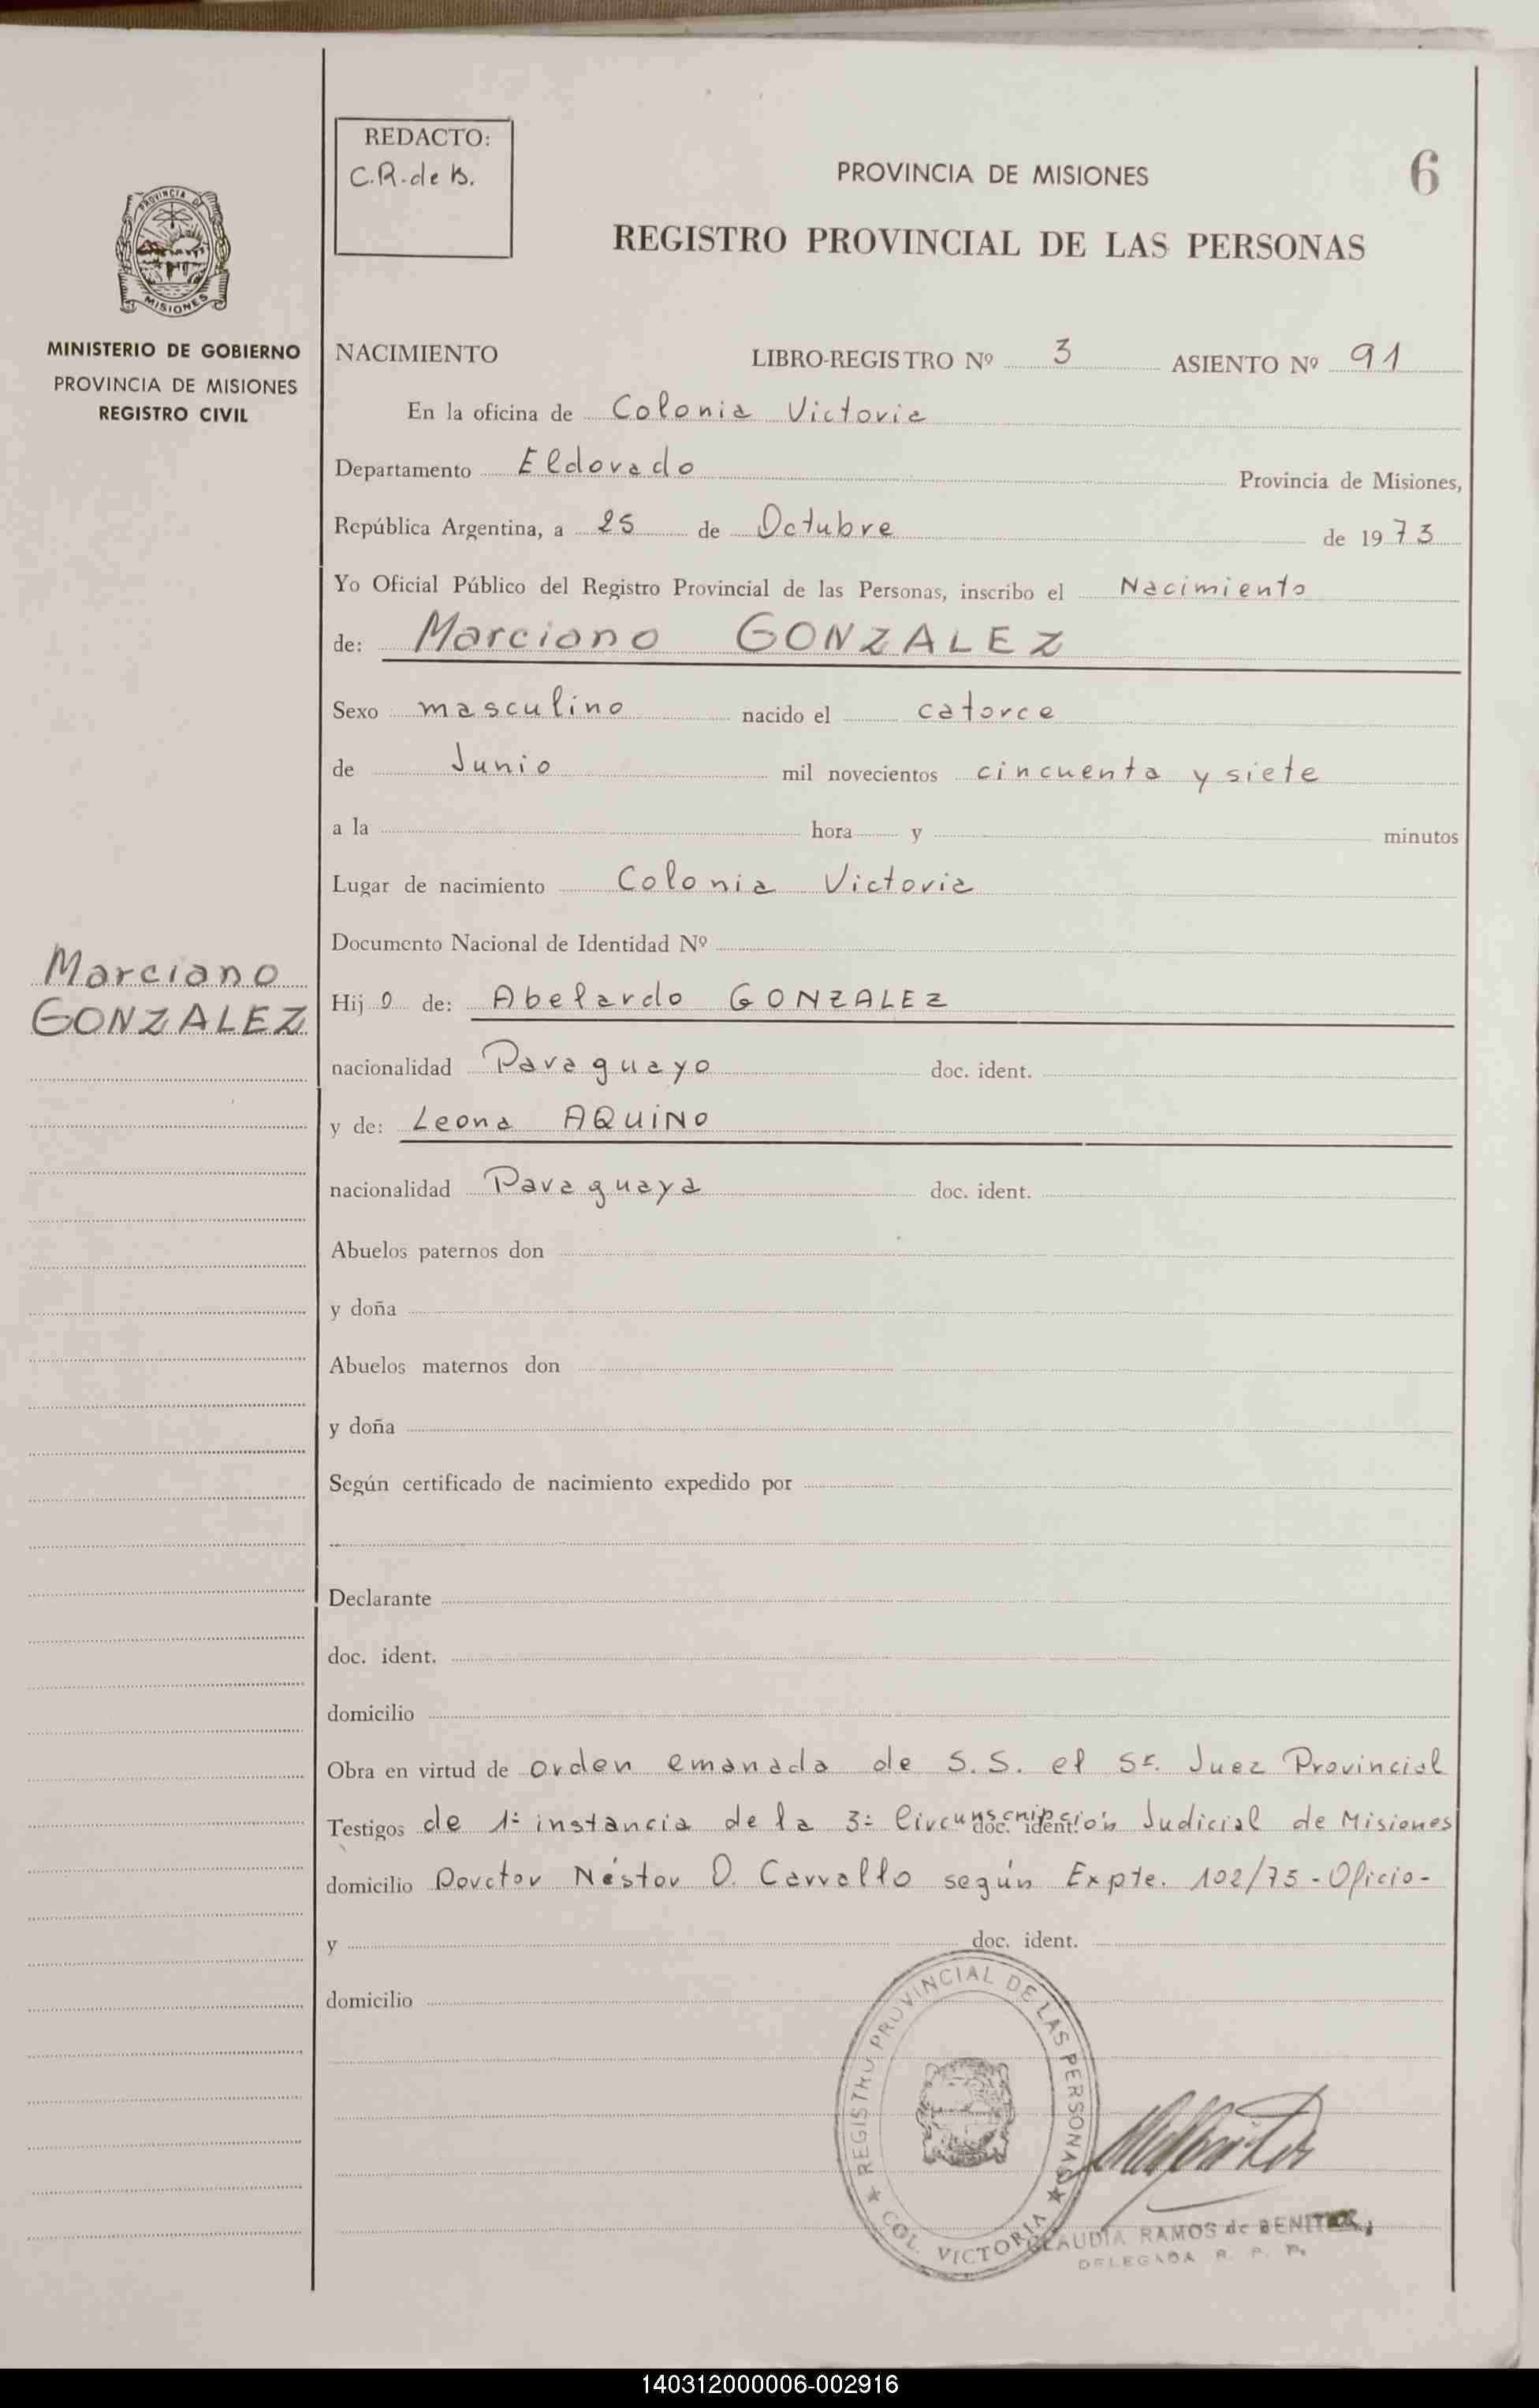 REDACTO:
C.R. de B.
PROVINCIA DE MISIONES
6
REGISTRO PROVINCIAL DE LAS PERSONAS
PROVINCIA DE
MISIONES
MINISTERIO DE GOBIERNO
PROVINCIA DE MISIONES
REGISTRO CIVIL
NACIMIENTO LIBRO-REGISTRO Nº 3 ASIENTO Nº 91
En la oficina de Colonia Victoria
Departamento Eldorado Provincia de Misiones,
República Argentina, a 25 de Octubre de 1973
Yo Oficial Público del Registro Provincial de las Personas, inscribo el Nacimiento
de: Marciano GONZALEZ
Sexo masculino nacido el catorce
de Junio mil novecientos cincuenta y siete
a la hora y minutos
Lugar de nacimiento Colonia Victoria
Documento Nacional de Identidad Nº
Marciano
GONZALEZ
Hijo de: Abelardo GONZALEZ
nacionalidad Paraguayo doc. ident.
y de: Leona AQUINO
nacionalidad Paraguaya doc. ident.
Abuelos paternos don
y doña
Abuelos maternos don
y doña
Según certificado de nacimiento expedido por
Declarante
doc. ident.
domicilio
Obra en virtud de orden emanada de S.S. el Sr. Juez Provincial
Testigos de 1ª instancia de la 3ª Circunscripción Judicial de Misiones doc. ident.
domicilio Dovctor Néstor O. Carvallo según Expte. 102/73 - Oficio-
y doc. ident.
domicilio
REGISTRO PROVINCIAL DE LAS PERSONAS
COL. VICTORIA
CLAUDIA RAMOS de BENITEZ
DELEGADA R. P. P.
140312000006-002916